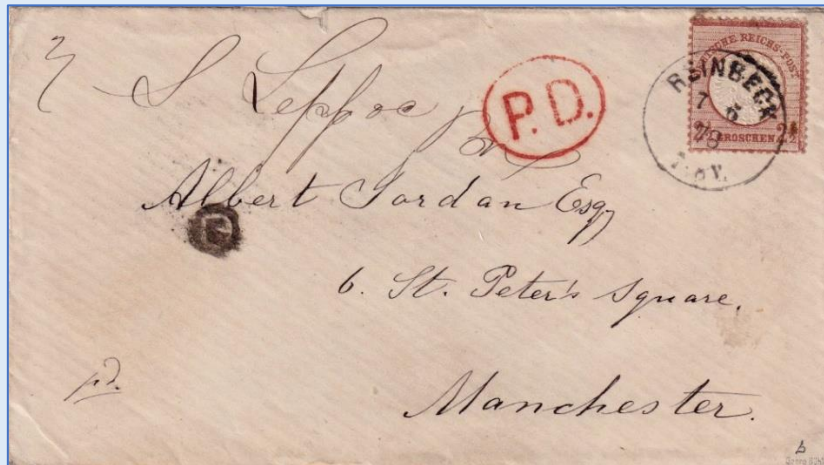 DEUTSCHE REICHS-POST
GROSCHEN 2½
REINBECK
7 5
P. D.
Albert Jordan Esq
6. St. Peter's Square.
pd.
Manchester.
b